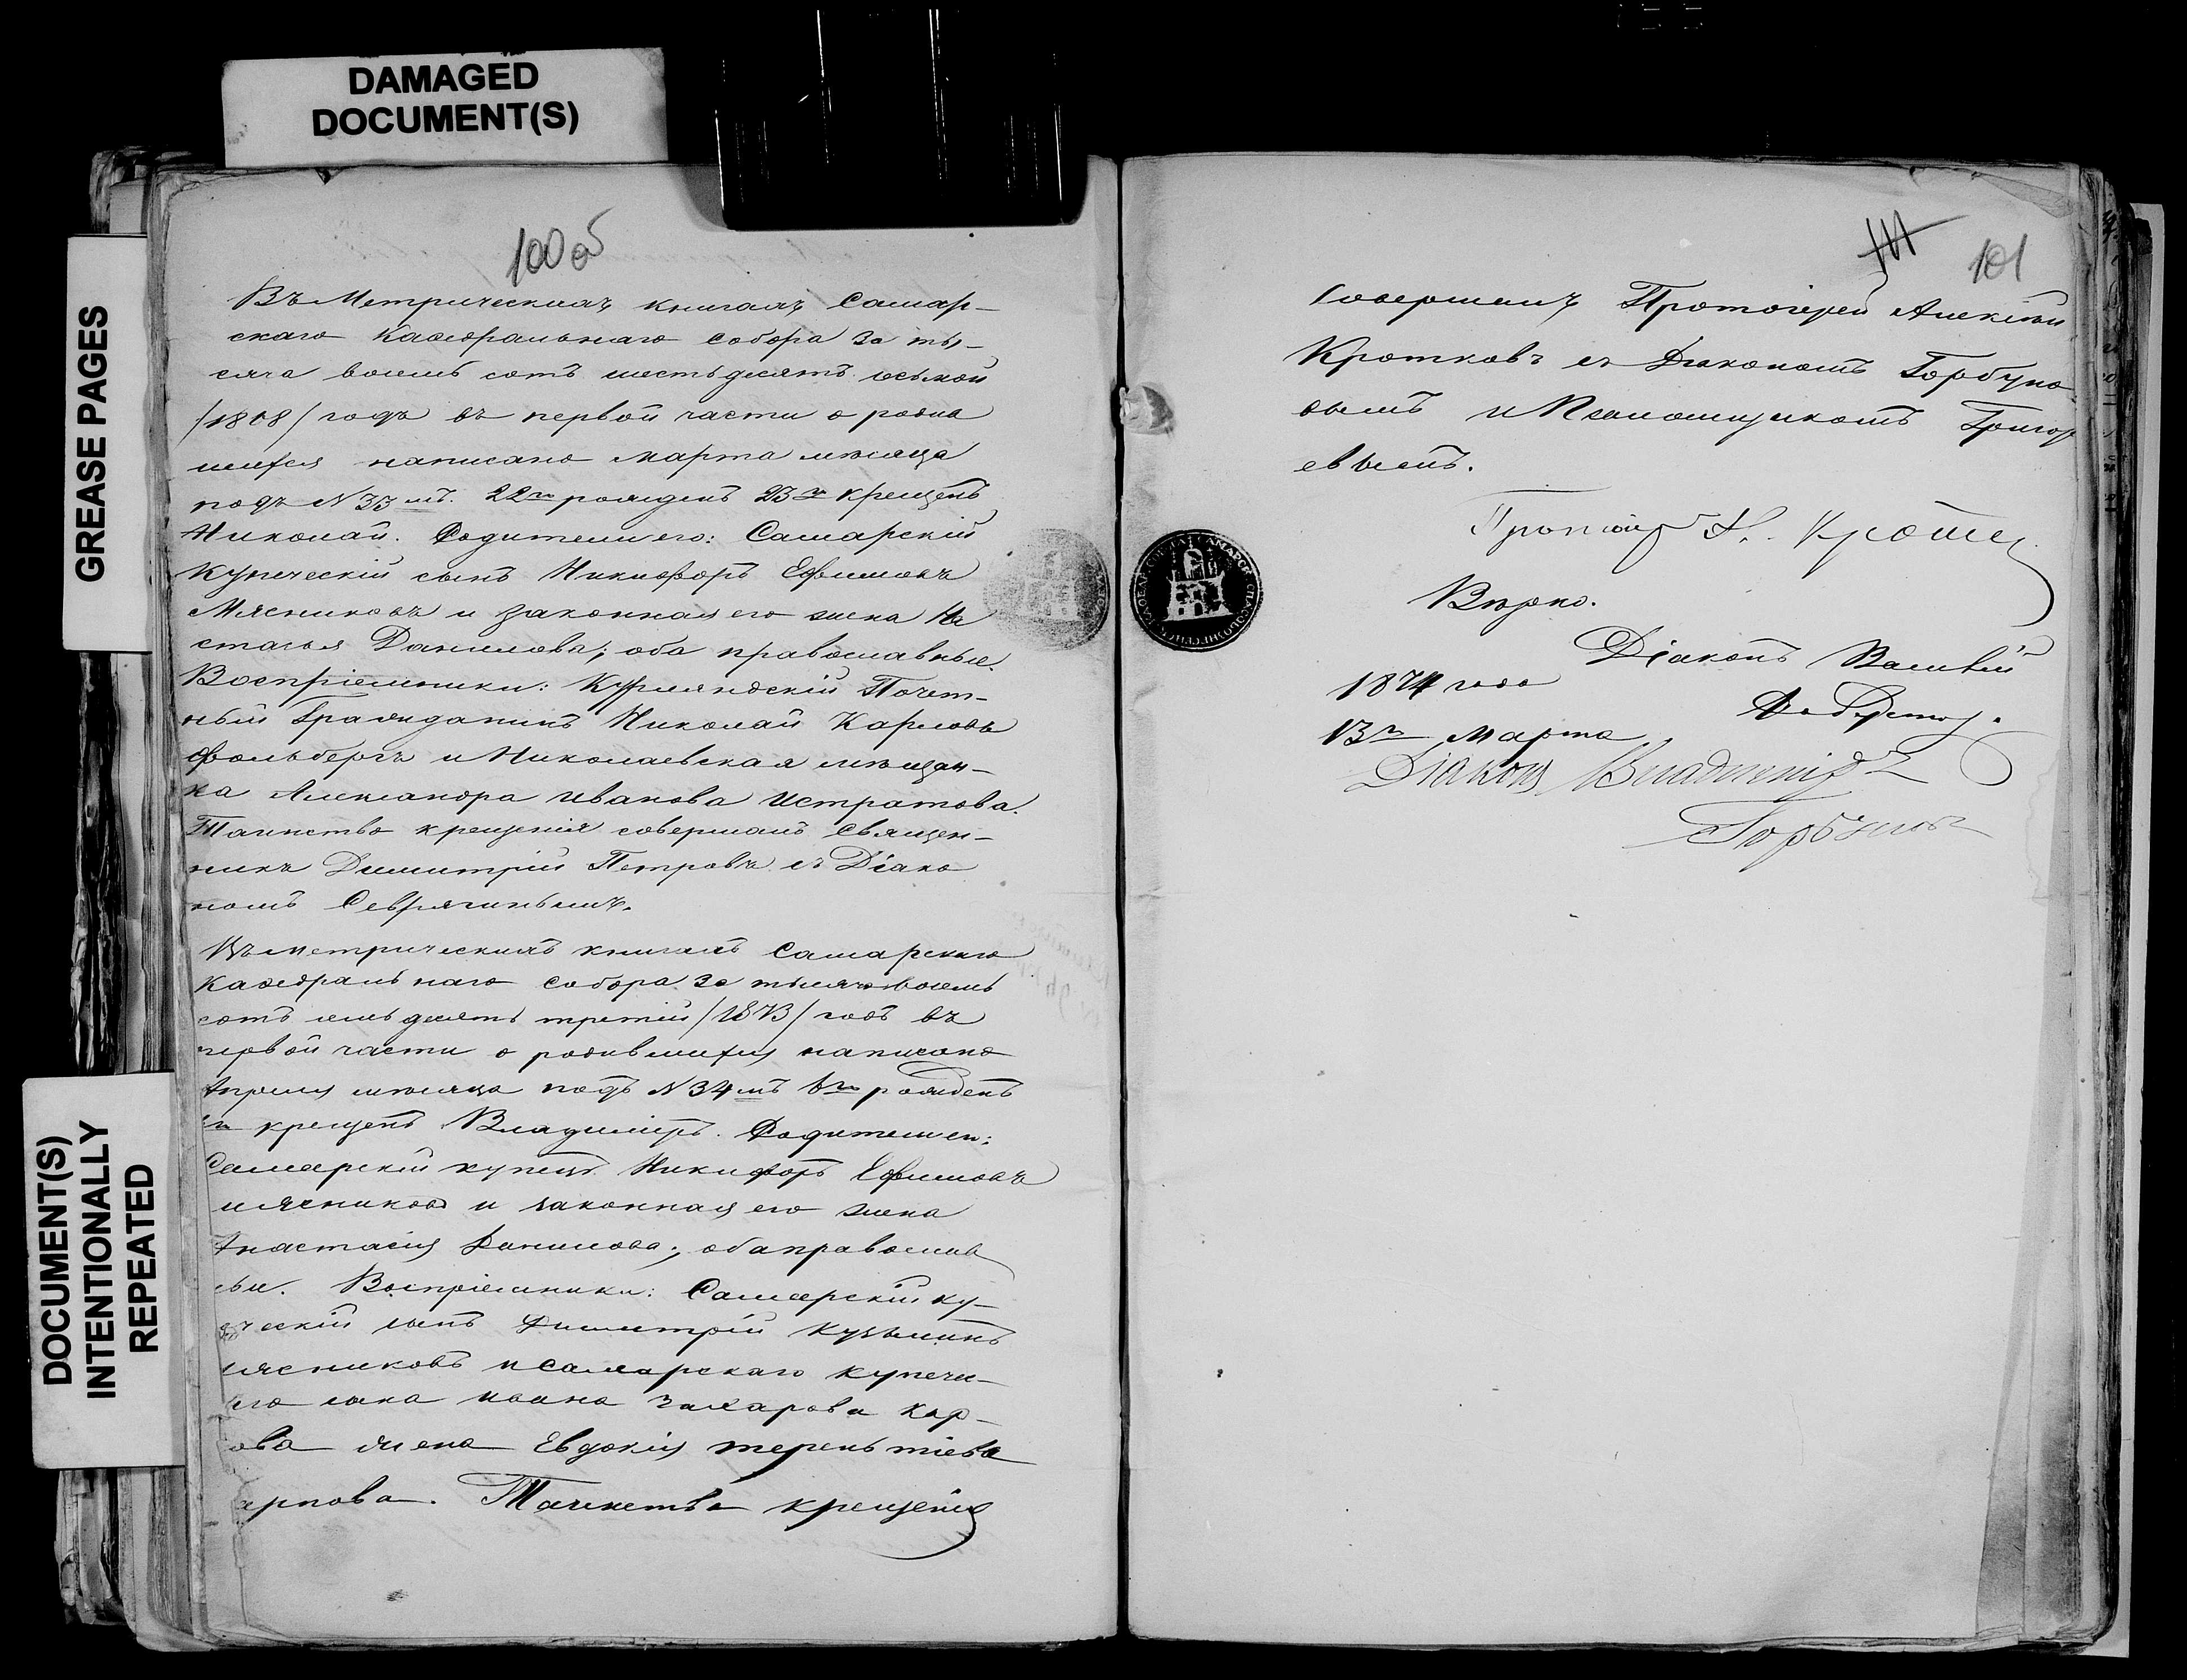 DAMAGED
DOCUMENT(S)
GREASE PAGES
DOCUMENT(S)
INTENTIONALLY
REPEATED
100 об
Въ Метрическихъ книгахъ Самар-
скаго Каѳедральнаго собора за ты-
сяча восемь сотъ шестьдесятъ осьмой
/1868/ годъ въ первой части о родив
шихся написано марта мѣсяца
подъ N 33 мъ. 22го рожденъ 23го крещенъ
Николай. Родители его: Самарскій
Купеческій сынъ Никифоръ Ефимовъ
Мясниковъ и законная его жена На
стасья Данилова; оба православные.
Воспріемники: Курляндскій Почет-
ный Гражданинъ Николай Карловъ
Фольбергъ и Николаевская мѣщан-
ка Александра Иванова Истратова.
Таинство крещенія совершалъ Священ-
никъ Димитрій Петровъ съ Діако
номъ Севрюгинымъ.
Въ метрическихъ книгахъ Самарскаго
Каѳедральнаго собора за тысячу восемь
сотъ семьдесятъ третій /1873/ годъ въ
первой части о родившихся написано
Апреля мѣсяца подъ N 34 мъ 6го рожденъ
крещенъ Владиміръ. Родители его:
Самарскій купецъ Никифоръ Ефимовъ
Мясниковъ и законная его жена
Анастасія Данилова; оба православ
ные. Воспріемники: Самарскій ку-
ческій сынъ Димитрій Кузьминъ
Мясниковъ и Самарскаго купече-
сына Ивана Захарова Кар-
ова жена Евдокія Терентіева
арпова. Таинство крещенія
101
Совершалъ Протоіерей Алексѣй
Кротковъ съ Діакономъ Горбуно
вымъ и Псаломщикомъ Григор
евымъ.
Протоіер А. Крот
Вѣрно.
Діаконъ
1874 года
13го Марта
Діаконъ Владиміръ
Горбуновъ